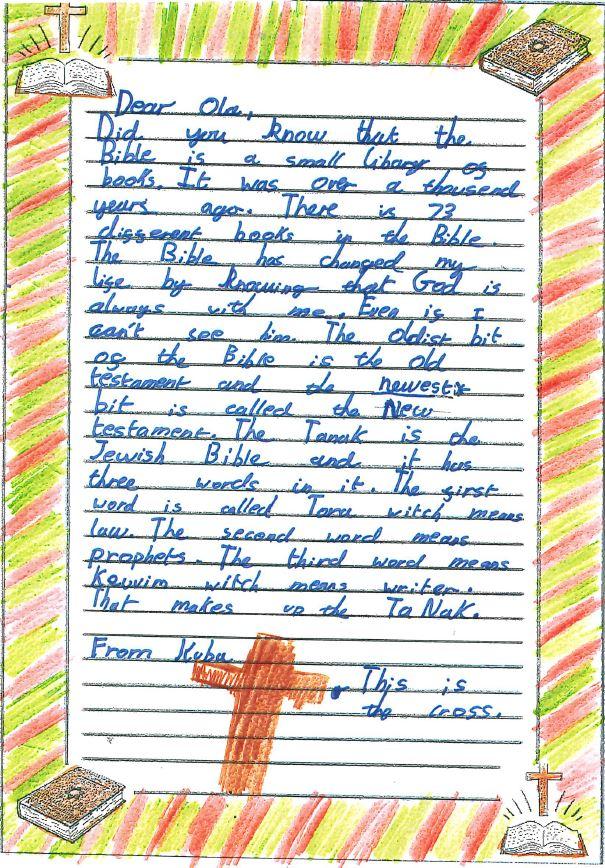 Dear Ola,
Did you know that the
Bible is a small library of
books. It was over a thousend
years ago. There is 73
different books in the Bible.
The Bible has changed my
life by knowing that God is
always with me. Even if I
can't see him. The oldist bit
of the Bible is the old
testament and the newest
bit is called the New
testament. The Tanak is the
Jewish Bible and it has
three words in it. The first
word is called Tora witch means
law. The second word means
prophets. The third word means
Kouvim witch means writer.
That makes up the Ta Nak.
From Kuba
This is
the cross.